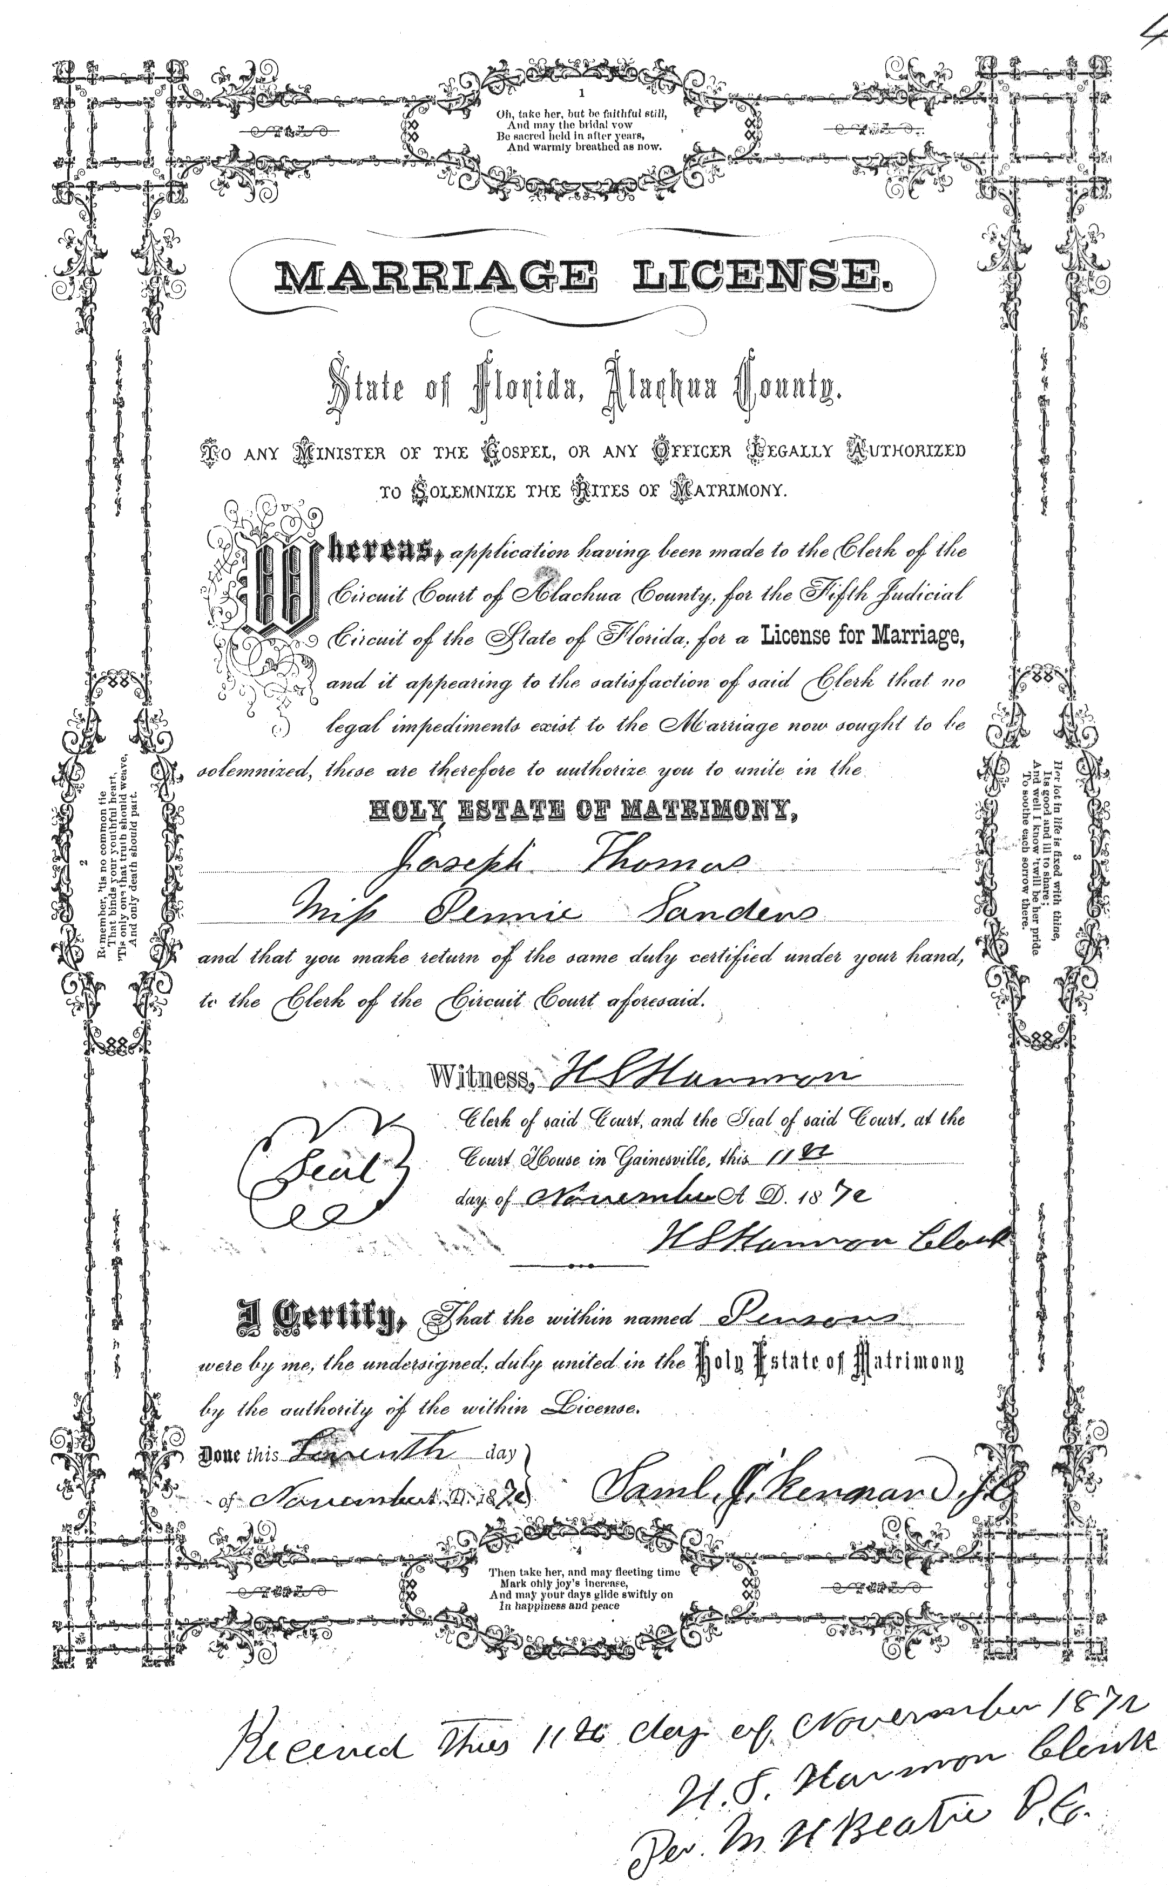 4
1
Oh, take her, but be faithful still,
And may the bridal vow
Be sacred held in after years,
And warmly breathed as now.
MARRIAGE LICENSE.
State of Florida, Alachua County.
TO ANY MINISTER OF THE GOSPEL, OR ANY OFFICER LEGALLY AUTHORIZED
TO SOLEMNIZE THE RITES OF MATRIMONY.
Whereas, application having been made to the Clerk of the
Circuit Court of Alachua County, for the Fifth Judicial
Circuit of the State of Florida, for a License for Marriage,
and it appearing to the satisfaction of said Clerk that no
legal impediments exist to the Marriage now sought to be
solemnized, these are therefore to authorize you to unite in the
HOLY ESTATE OF MATRIMONY,
Joseph Thomas
Miss Pennie Sanders
and that you make return of the same duly certified under your hand,
to the Clerk of the Circuit Court aforesaid.
2
Remember, 'tis no common tie
That binds your youthful heart,
'Tis only one that truth should weave,
And only death should part.
3
Her lot in life is fixed with thine,
Its good and ill to share;
And well I know 'twill be her pride
To soothe each sorrow there.
Witness, H S Harmon
Clerk of said Court, and the Seal of said Court, at the
Court House in Gainesville, this 11th
day of November A D. 1872
Seal
H S Harmon Clerk
I Certify, That the within named Persons
were by me, the undersigned, duly united in the Holy Estate of Matrimony
by the authority of the within License.
Done this day
of November A. D. 1872
Saml. J. Kennard J.P.
4
Then take her, and may fleeting time
Mark only joy's increase,
And may your days glide swiftly on
In happiness and peace
Received this 11th day of November 1872
H. S. Harmon Clerk
Per. M H Beatie D.C.